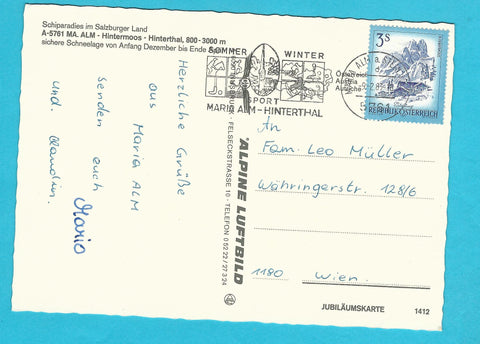 Schiparadies im Salzburger Land
A-5761 MA. ALM - Hintermoos - Hinterthal, 800-3000 m
sichere Schneelage von Anfang Dezember bis Ende April
SOMMER WINTER
SPORT
MARIA ALM - HINTERTHAL
5761
3 S
REPUBLIK ÖSTERREICH
Herzliche Grüße
aus
Maria ALM
senden euch
Mario
und. Claudia.
"ALPINE LUFTBILD
FELSECKSTRASSE 10 - TELEFON 0 52 22 / 27 3 24
An
Fam. Leo Müller
Währingerstr. 128/6
1180 Wien
JUBILÄUMSKARTE 1412